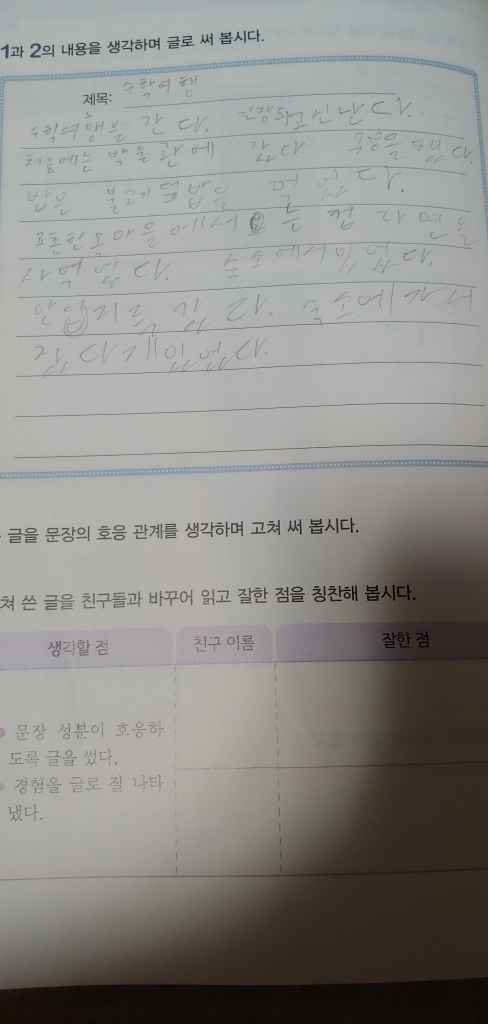 1과 2의 내용을 생각하며 글로 써 봅시다.
제목: 수학여행
수학여행을 간다. 긴장되고 신난다.
처음에는 박물관에 갔다. 구경을 했다.
밥은 불고기 덮밥을 먹었다.
마을에서 컵라면을
사먹었다. 숙소에서
갔다. 숙소에 가서
잤다 재밌었다.
글을 문장의 호응 관계를 생각하며 고쳐 써 봅시다.
쳐 쓴 글을 친구들과 바꾸어 읽고 잘한 점을 칭찬해 봅시다.
생각할 점 친구 이름 잘한 점
문장 성분이 호응하
도록 글을 썼다.
경험을 글로 잘 나타
냈다.